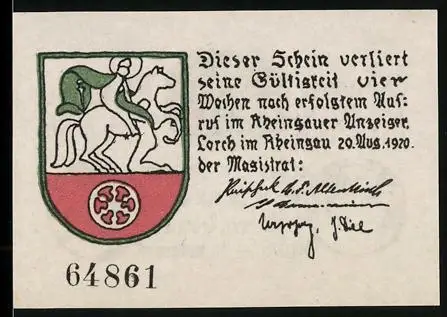 Dieser Schein verliert
seine Gültigkeit vier
Wochen nach erfolgtem Auf-
ruf im Rheingauer Anzeiger.
Lorch im Rheingau 20. Aug. 1920.
der Magistrat:
64861